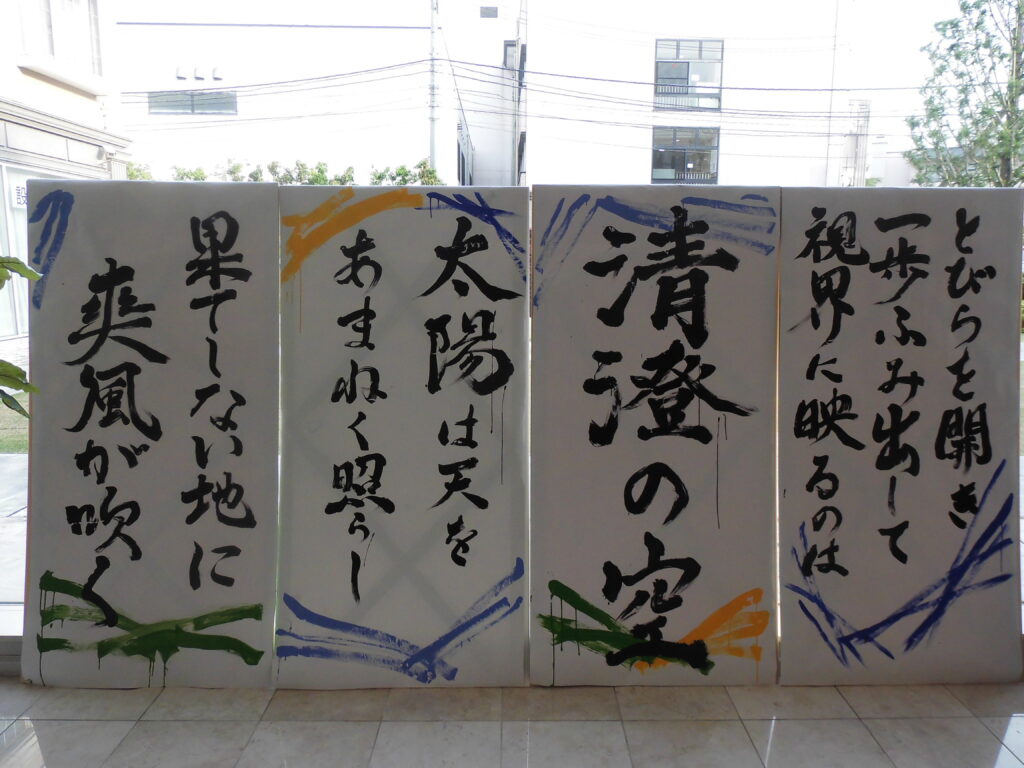 とびらを開き
一歩ふみ出して
視界に映るのは
清澄の空
太陽は天を
あまねく照らし
果てしない地に
爽風が吹く
設